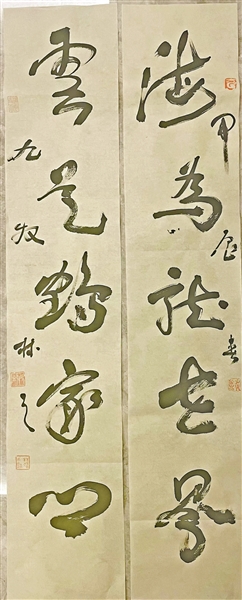 海為龍世界
甲辰春
雲是鶴家鄉
九牧林